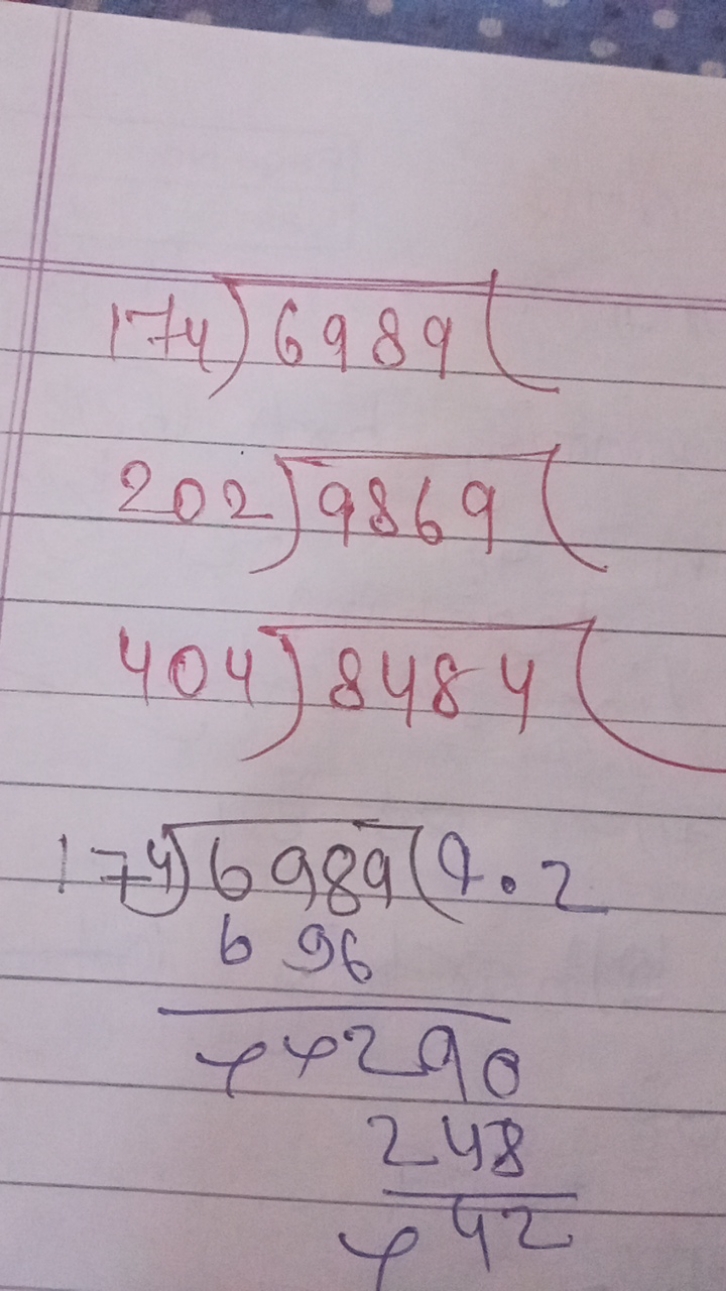 174)6989(
202)9869(
404)8484(
174)6989(9.2
696
××290
248
×42